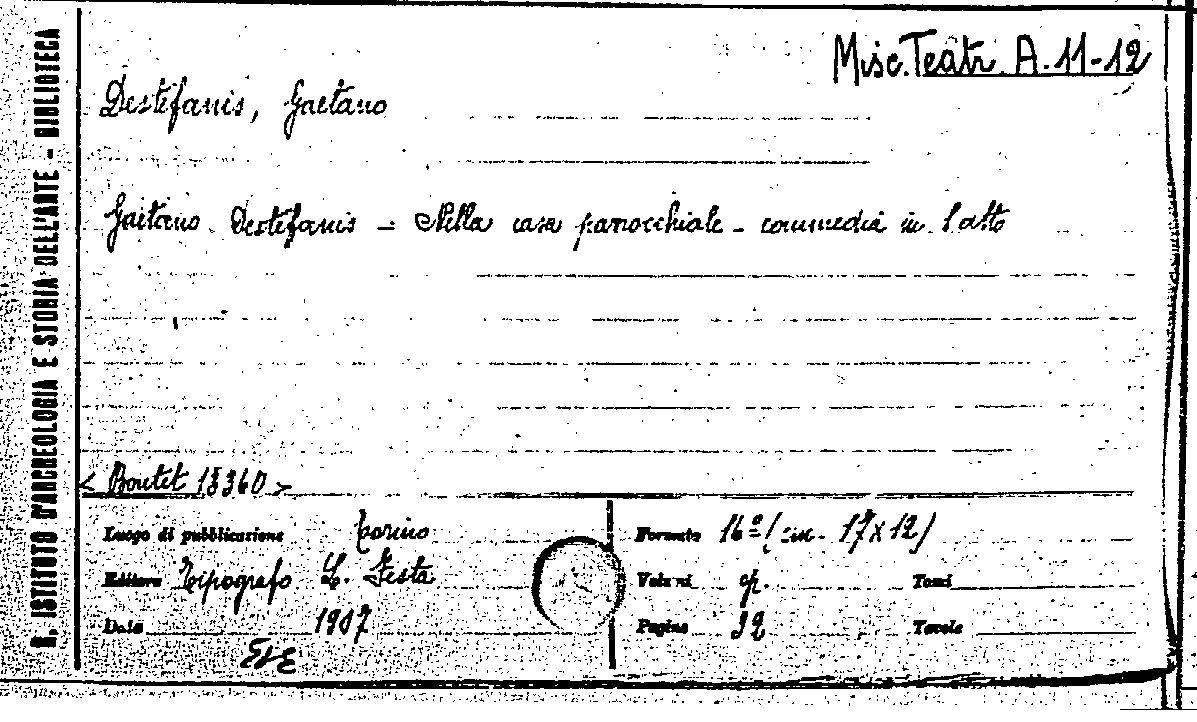 Misc. Teatr. A. 11-12
Destefanis, Gaetano
Gaetano Destefanis - Nella casa parrocchiale - commedia in 1 atto
< Boutet 15360 >
Luogo di pubblicazione Torino
Editore Tipografo L. Festa
Data 1907
Formato 16º ( cm. 17x12)
Volumi op. Tomi
Pagine 32 Tavole
R. ISTITUTO D'ARCHEOLOGIA E STORIA DELL'ARTE - BIBLIOTECA